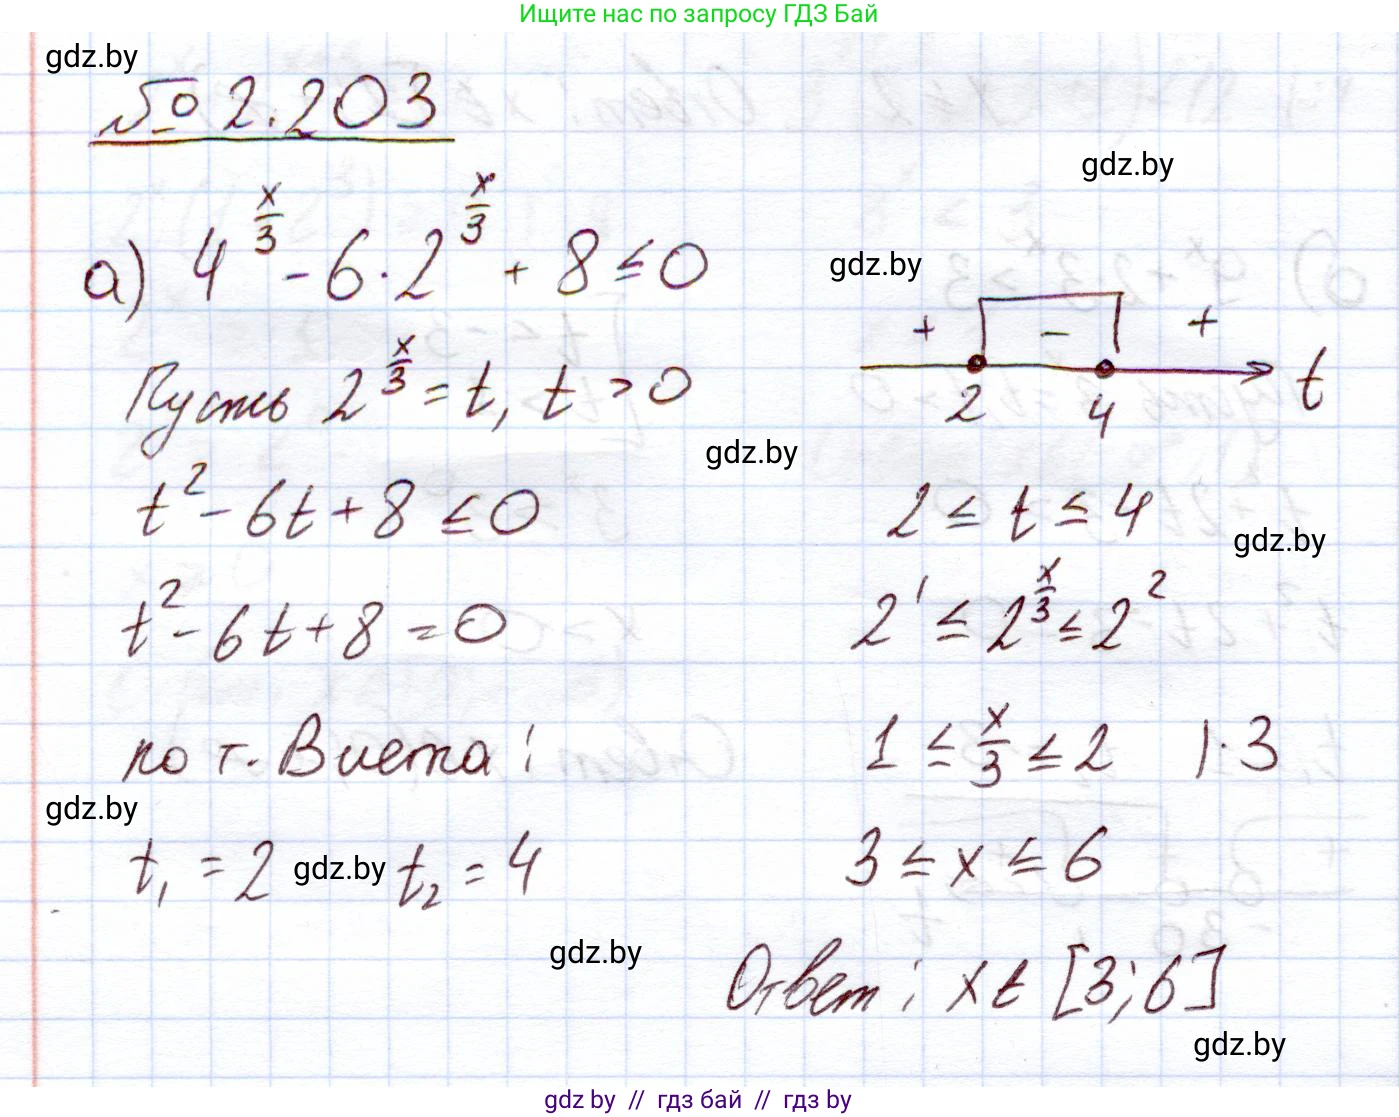 Ищите нас по запросу ГДЗ Бай
gdz.by
№ 2.203
gdz.by
а) 4^(x/3) - 6·2^(x/3) + 8 ≤ 0
gdz.by
+ - +
2 4 t
Пусть 2^(x/3) = t, t > 0
gdz.by
t² - 6t + 8 ≤ 0
t² - 6t + 8 = 0
по т. Виета:
gdz.by
t₁ = 2 gdz.by t₂ = 4
gdz.by
2 ≤ t ≤ 4
gdz.by
2¹ ≤ 2^(x/3) ≤ 2²
1 ≤ x/3 ≤ 2 |·3
3 ≤ x ≤ 6
Ответ: x ∈ [3; 6]
gdz.by
gdz by // гдз бай // гдз by